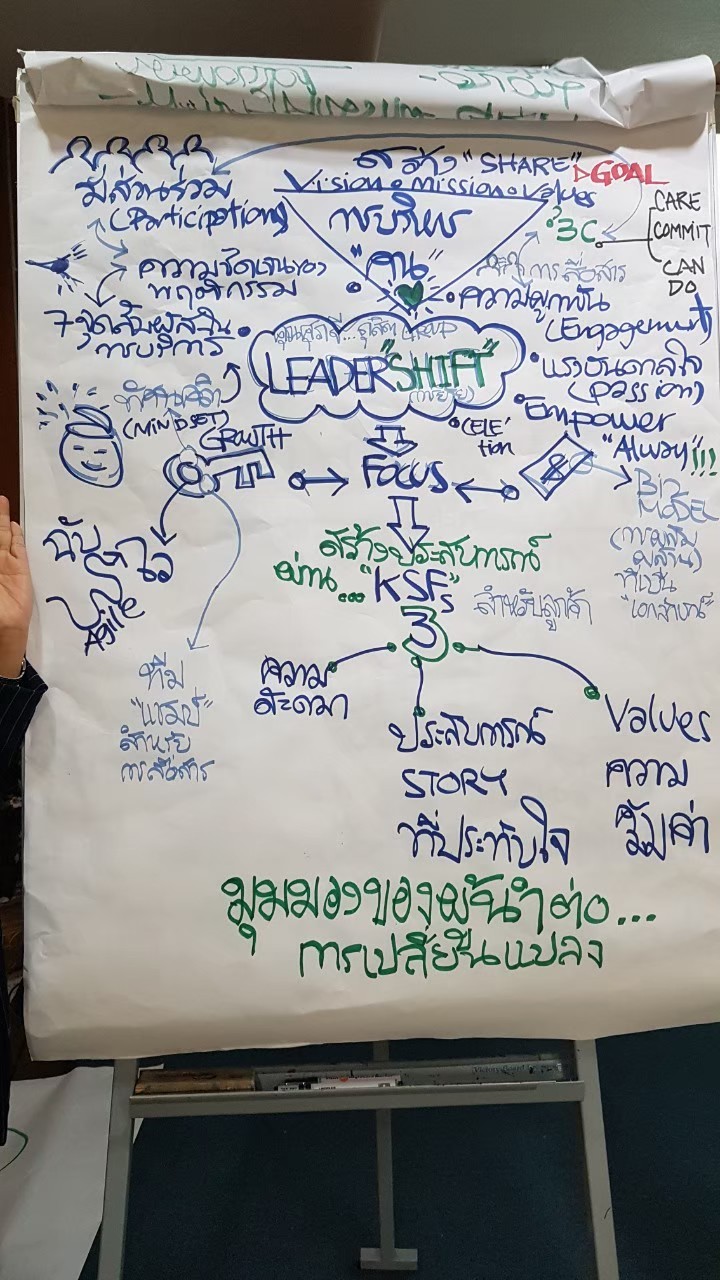 สร้าง "SHARE"
GOAL
Vision • mission • values
มีส่วนร่วม
(Participation)
การบริหาร
"คน"
3C
CARE
COMMIT
CAN
DO
การสื่อสาร
ความชัดเจนของ
พฤติกรรม
ความผูกพัน
(Engagement)
7 จุดสัมผัสใน
การบริการ
LEADER "SHIFT"
แรงบันดาลใจ
(Passion)
Empower
"Alway"!!!
(MINDSET)
GROWTH
(CELE'
tion
FOCUS
Biz
MODEL
(การผสม
ผสาน)
ที่เป็น
"เอกลักษณ์"
ฉับ
ไว
Agile
สร้างประสบการณ์
ผ่าน... "KSFs"
สำหรับลูกค้า
3
ทีม
"แชมป์"
สำหรับ
การสื่อสาร
ความ
สะดวก
ประสบการณ์
STORY
ที่ประทับใจ
Values
ความ
คุ้มค่า
มุมมองของผู้นำต่อ...
การเปลี่ยนแปลง